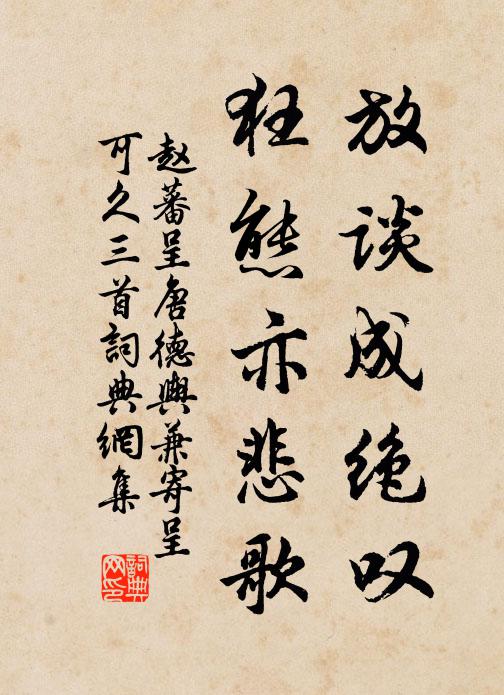 放谈成绝叹
狂態亦悲歌
赵蕃呈唐德興兼寄呈
可久三首詞典網集
詞典网印